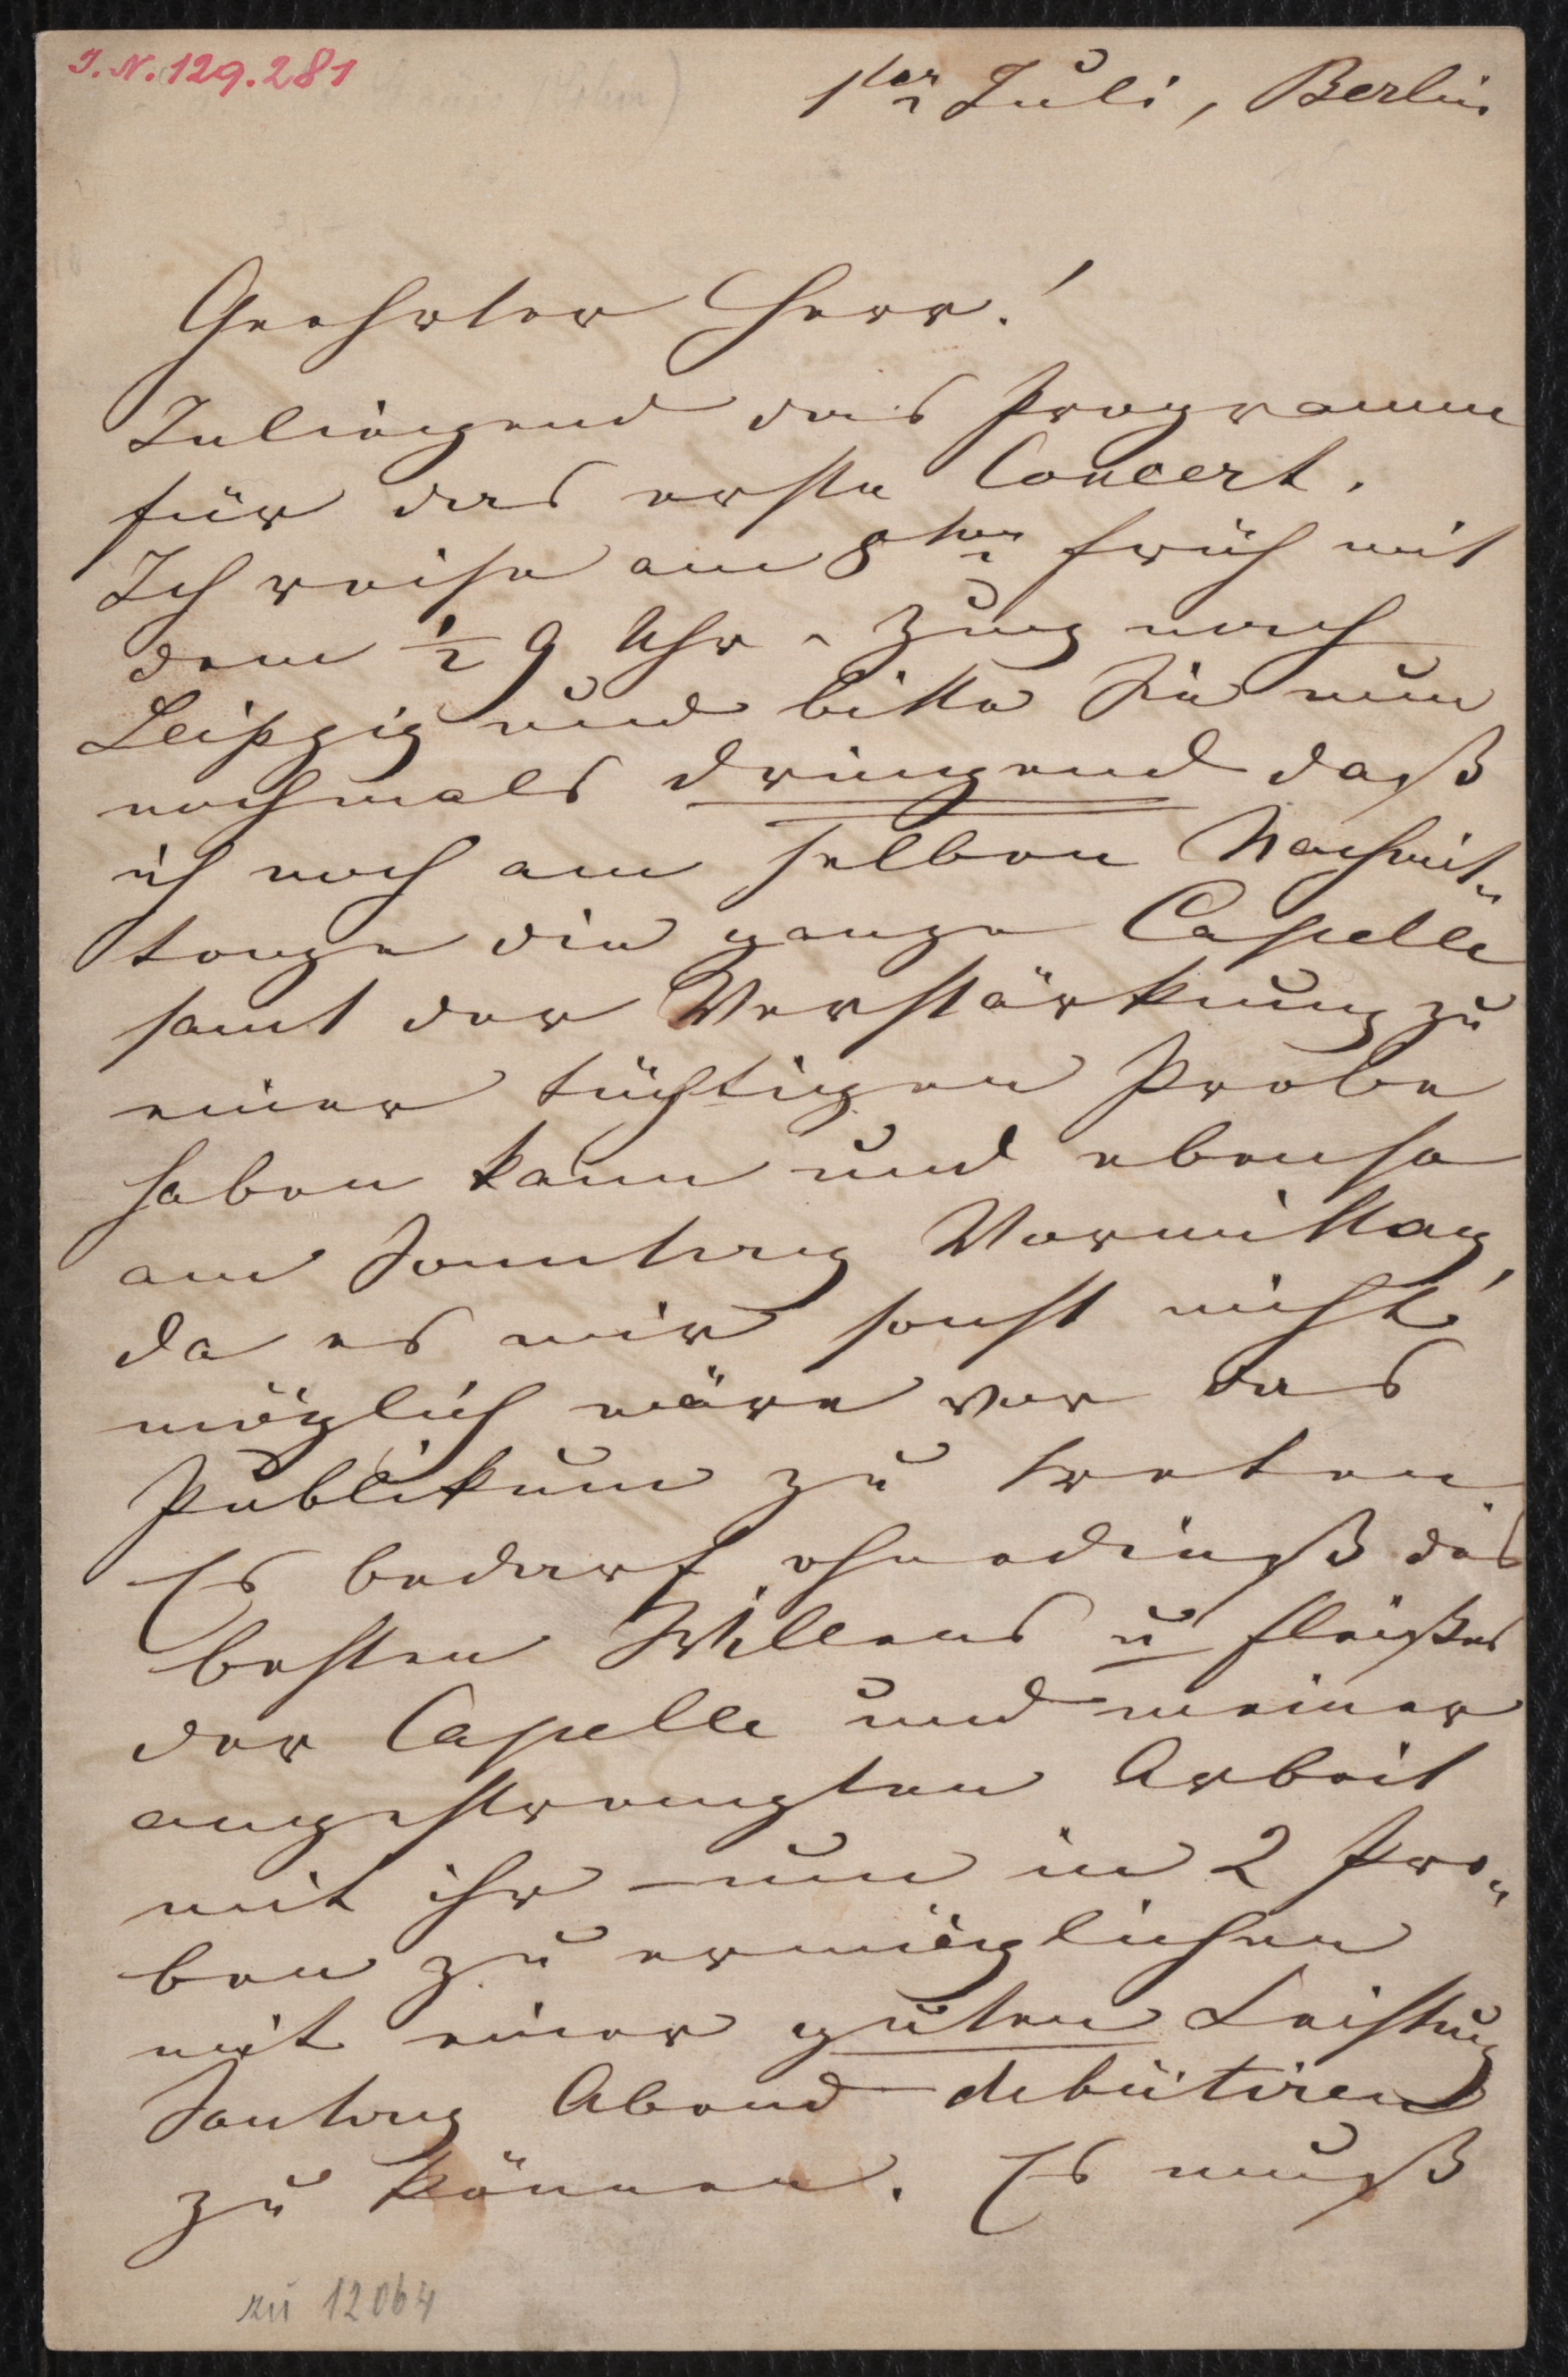 I.N. 129.281
1ter Juli, Berlin
Geehrter Herr!
Inliegend das Programm
für das erste Concert.
Ich reise am 8ten früh mit
dem ½ 9 Uhr-Zug nach
Leipzig und bitte Sie nun
nochmals dringend daß
ich noch am selben Nachmit-
tage die ganze Capelle
samt der Verstärkung zu
einer tüchtigen Probe
haben kann und ebenso
am Sonntag Vormittag,
da es mir sonst nicht
möglich wäre vor das
Publikum zu treten
Es bedarf ohnedieß des
besten Willens u Fleißes
der Capelle und meiner
angestrengten Arbeit
mit ihr – um in 2 Pro-
ben zu ermöglichen
mit einer guten Leistung
Sontag Abend debütiren
zu können. Es muß
zu 12064